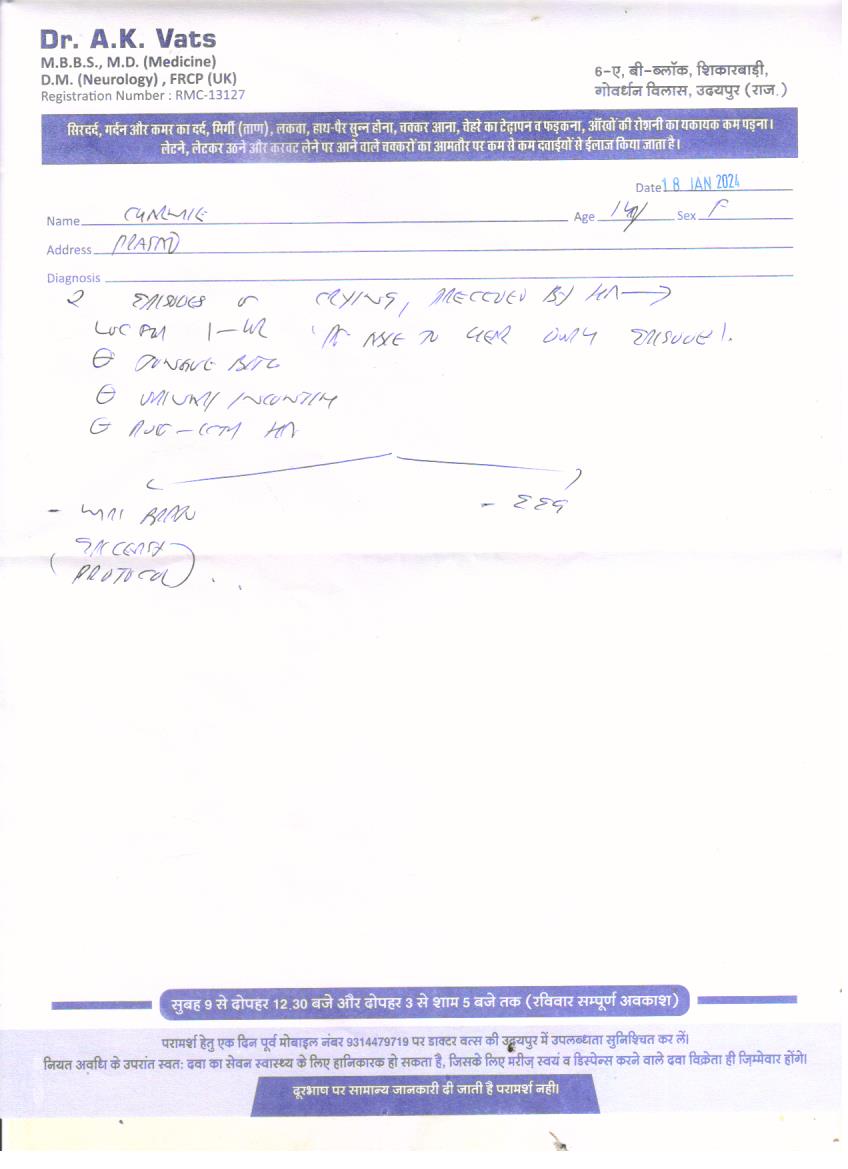 Dr. A.K. Vats
M.B.B.S., M.D. (Medicine)
D.M. (Neurology) , FRCP (UK)
Registration Number : RMC-13127
6-ए, बी-ब्लॉक, शिकारबाड़ी,
गोवर्धन विलास, उदयपुर (राज.)
सिरदर्द, गर्दन और कमर का दर्द, मिर्गी (ताण), लकवा, हाथ-पैर सुन्न होना, चक्कर आना, चेहरे का टेढ़ापन व फड़कना, आँखों की रोशनी का यकायक कम पड़ना।
लेटने, लेटकर उठने और करवट लेने पर आने वाले चक्करों का आमतौर पर कम से कम दवाईयों से ईलाज किया जाता है।
Date 18 JAN 2024
Name Age Sex F
Address
Diagnosis
2 EPISODES OF CRYING, PRECEDED BY HA →
LOC FOR 1-HR EPISODE
⊖ TONGUE BITE
⊖ URINARY
⊖ HA
- MRI BRAIN - EEG
(EPILEPSY
PROTOCOL)
सुबह 9 से दोपहर 12.30 बजे और दोपहर 3 से शाम 5 बजे तक (रविवार सम्पूर्ण अवकाश)
परामर्श हेतु एक दिन पूर्व मोबाइल नंबर 9314479719 पर डाक्टर वत्स की उदयपुर में उपलब्धता सुनिश्चित कर लें।
नियत अवधि के उपरांत स्वत: दवा का सेवन स्वास्थ्य के लिए हानिकारक हो सकता है, जिसके लिए मरीज़ स्वयं व डिस्पेन्स करने वाले दवा विक्रेता ही ज़िम्मेवार होंगे।
दूरभाष पर सामान्य जानकारी दी जाती है परामर्श नही।